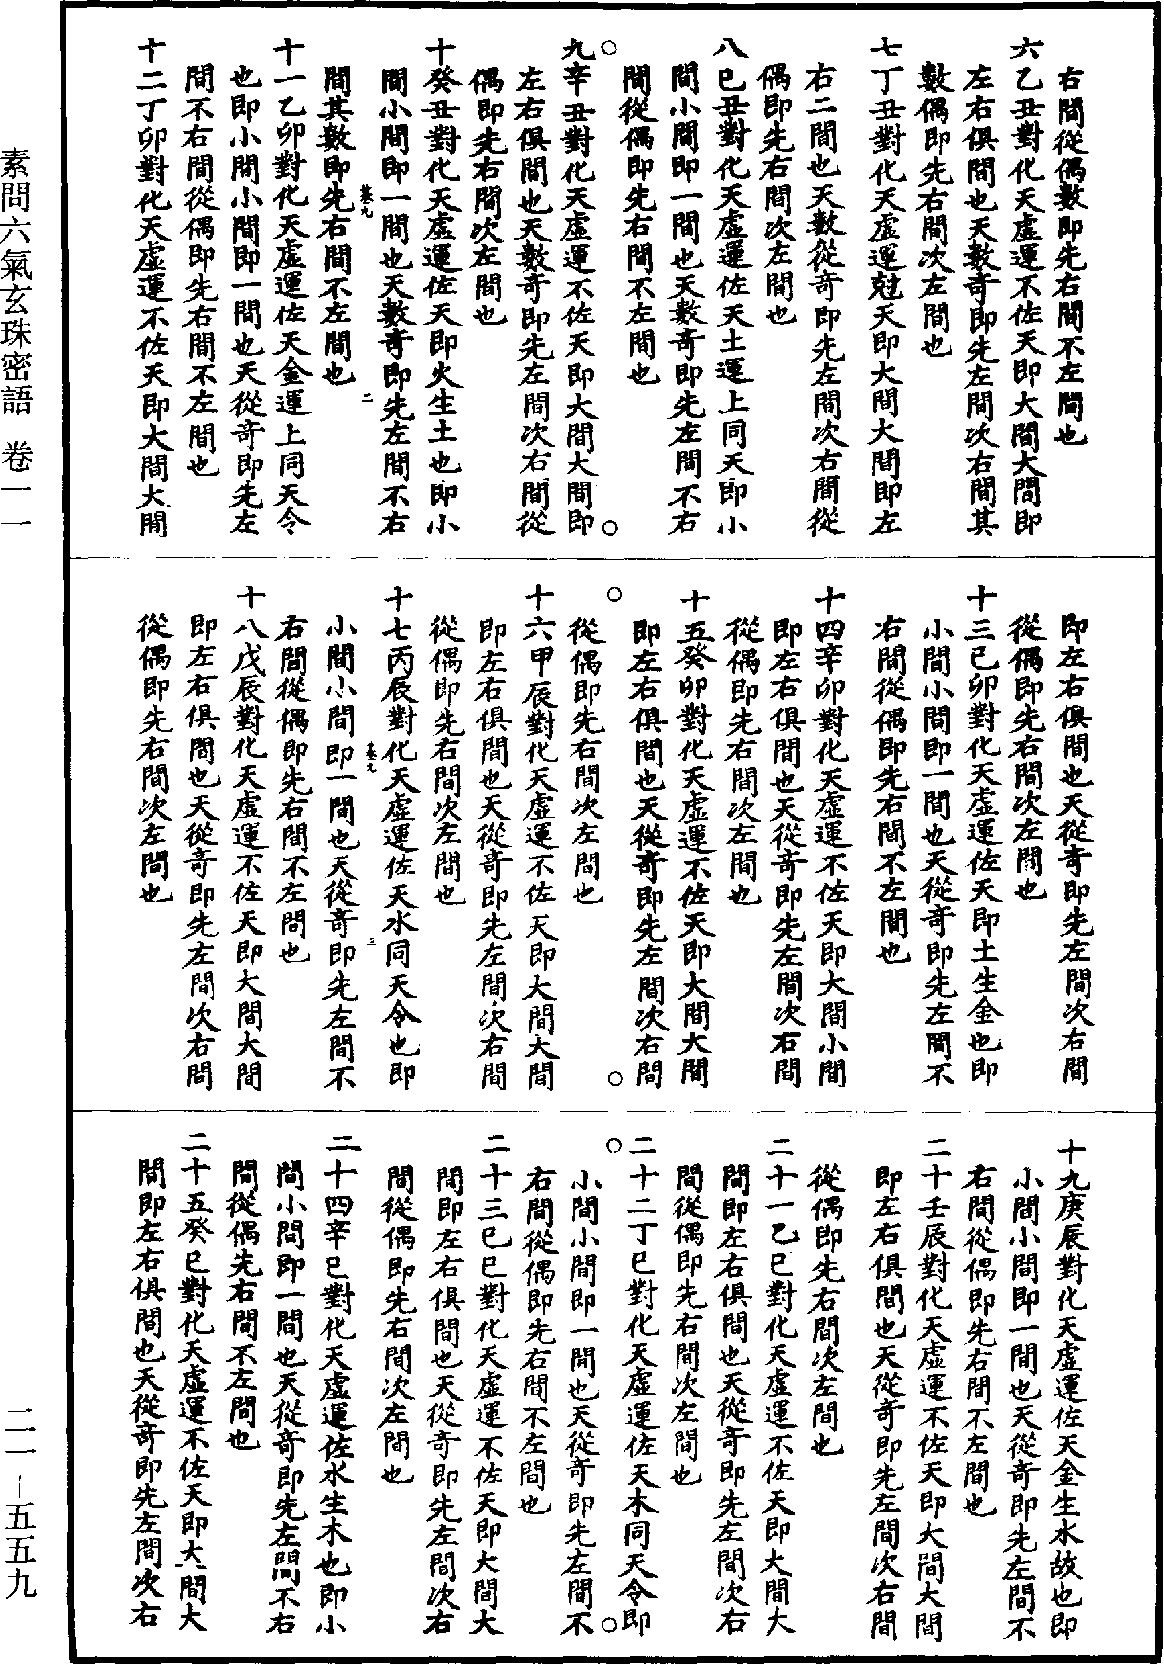 右間從偶數即先右間不左間也
六乙丑對化天虛運不佐天即大間大間即
左右俱間也天數奇即先左間次右間其
數偶即先右間次左間也
七丁丑對化天虛運尅天即大間大間即左
右二間也天數從奇即先左間次右間從
偶即先右間次左間也
八巳丑對化天虛運佐天土運上同天即小
間小間即一間也天數奇即先左間不右
間從偶即先右間不左間也
九辛丑對化天虛運不佐天即大間大間即
左右俱間也天數奇即先左間次右間從
偶即先右間次左間也
十癸丑對化天虛運佐天即火生土也即小
間小間即一間也天數奇即先左間不右
間其數即先右間不左間也
卷九 二
十一乙卯對化天虛運佐天金運上同天令
也即小間小間即一間也天從奇即先左
間不右間從偶即先右間不左間也
十二丁卯對化天虛運不佐天即大間大間
即左右俱間也天從奇即先左間次右間
從偶即先右間次左間也
十三巳卯對化天虛運佐天即土生金也即
小間小間即一間也天從奇即先左間不
右間從偶即先右間不左間也
十四辛卯對化天虛運不佐天即大間小間
即左右俱間也天從奇即先左間次右間
從偶即先右間次左間也
十五癸卯對化天虛運不佐天即大間大間
即左右俱間也天從奇即先左間次右間
從偶即先右間次左間也
十六甲辰對化天虛運不佐天即大間大間
即左右俱間也天從奇即先左間次右間
從偶即先右間次左間也
十七丙辰對化天虛運佐天水同天令也即
卷九 三
小間小間即一間也天從奇即先左間不
右間從偶即先右間不左間也
十八戊辰對化天虛運不佐天即大間大間
即左右俱間也天從奇即先左間次右間
從偶即先右間次左間也
十九庚辰對化天虛運佐天金生水故也即
小間小間即一間也天從奇即先左間不
右間從偶即先右間不左間也
二十壬辰對化天虛運不佐天即大間大間
即左右俱間也天從奇即先左間次右間
從偶即先右間次左間也
二十一乙巳對化天虛運不佐天即大間大
間即左右俱間也天從奇即先左間次右
間從偶即先右間次左間也
二十二丁巳對化天虛運佐天木同天令即
小間小間即一間也天從奇即先左間不
右間從偶即先右間不左間也
二十三巳巳對化天虛運不佐天即大間大
間即左右俱間也天從奇即先左間次右
間從偶即先右間次左間也
二十四辛巳對化天虛運佐水生木也即小
間小間即一間也天從奇即先左間不右
間從偶先右間不左間也
二十五癸巳對化天虛運不佐天即大間大
間即左右俱間也天從奇即先左間次右
素問六氣玄珠密語 卷一一
二一—五五九